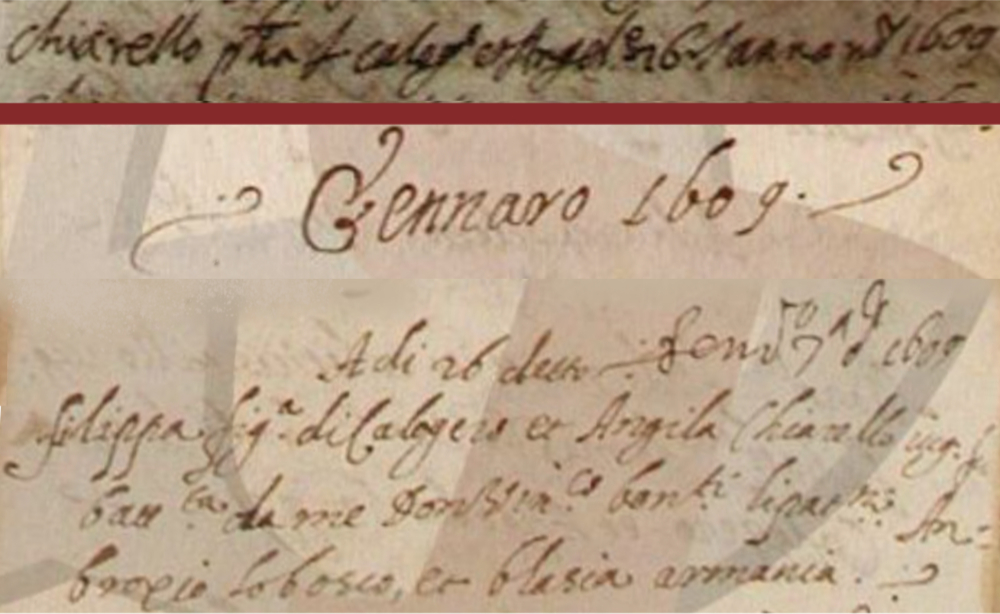 chiarello ph.a f. calog.o et Angel.a 26 Jannarii 1609
Gennaro 1609.
Adi 26 detto Gen.ro 7 Ind. 1609
filippa fig.a di Calogero et Angila Chiarello iug. fu
batt.ta da me Don Vin.co bonti li patrini An=
broxio lobosco, et blasia armania.